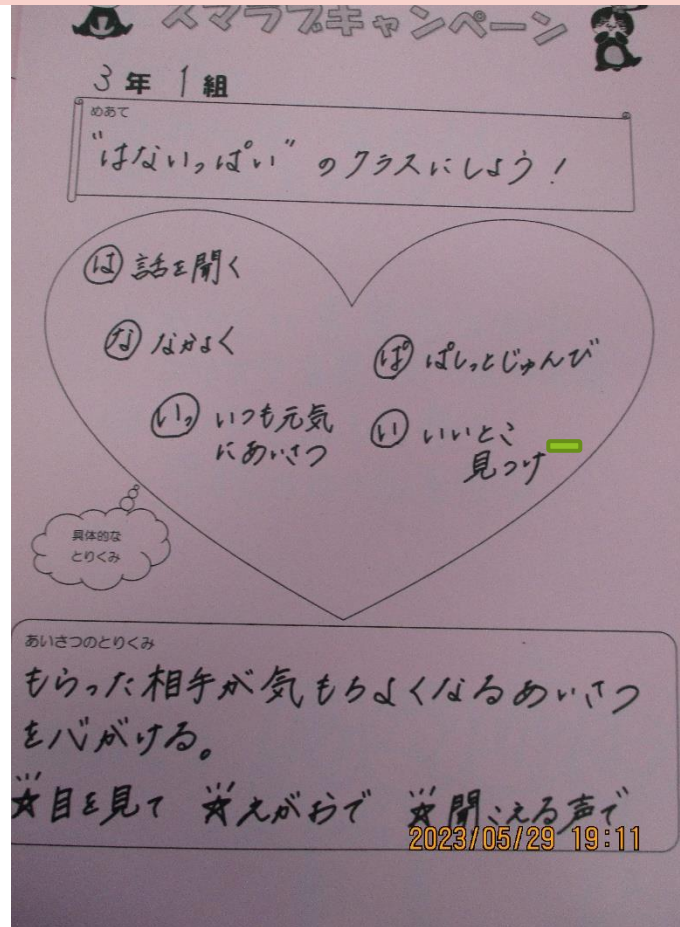 スマラブキャンペーン
3年1組
めあて
"はないっぱい"のクラスにしよう!
は 話を聞く
な なかよく
いっ いつも元気
にあいさつ
ぱ ぱしっとじゅんび
い いいとこ
見つけ
具体的な
とりくみ
あいさつのとりくみ
もらった相手が気もちよくなるあいさつ
を心がける。
☆目を見て ☆えがおで ☆聞こえる声で
2023/05/29 19:11